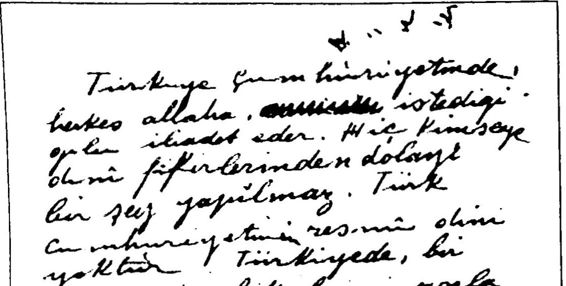 Türkiye Cumhuriyetinde,
herkes allaha, istediği
gibi ibadet eder. Hiç Kimseye
dinî fikirlerinden dolayi
bir şey yapılmaz. Türk
Cumhuriyetinin resmî dini
yoktur Türkiyede, bir